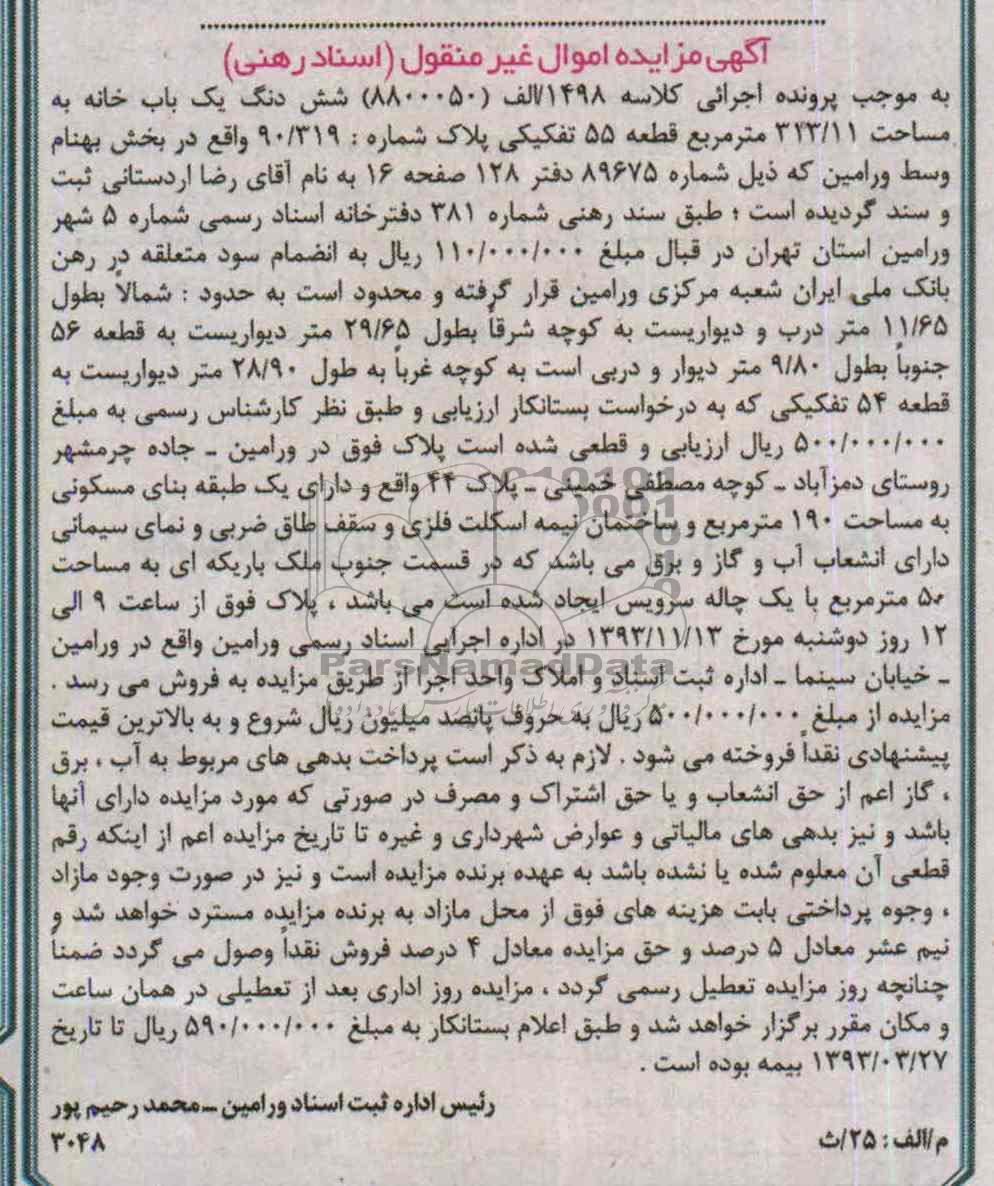 آگهی مزایده اموال غیر منقول (اسناد رهنی)
به موجب پرونده اجرائی کلاسه ۱۴۹۸/الف (۸۸۰۰۰۵۰) شش دنگ یک باب خانه به
مساحت ۳۱۳/۱۱ مترمربع قطعه ۵۵ تفکیکی پلاک شماره : ۹۰/۳۱۹ واقع در بخش بهنام
وسط ورامین که ذیل شماره ۸۹۶۷۵ دفتر ۱۲۸ صفحه ۱۶ به نام آقای رضا اردستانی ثبت
و سند گردیده است ؛ طبق سند رهنی شماره ۳۸۱ دفترخانه اسناد رسمی شماره ۵ شهر
ورامین استان تهران در قبال مبلغ ۱۱۰/۰۰۰/۰۰۰ ریال به انضمام سود متعلقه در رهن
بانک ملی ایران شعبه مرکزی ورامین قرار گرفته و محدود است به حدود : شمالاً بطول
۱۱/۶۵ متر درب و دیواریست به کوچه شرقاً بطول ۲۹/۶۵ متر دیواریست به قطعه ۵۶
جنوباً بطول ۹/۸۰ متر دیوار و دربی است به کوچه غرباً به طول ۲۸/۹۰ متر دیواریست به
قطعه ۵۴ تفکیکی که به درخواست بستانکار ارزیابی و طبق نظر کارشناس رسمی به مبلغ
۵۰۰/۰۰۰/۰۰۰ ریال ارزیابی و قطعی شده است پلاک فوق در ورامین ـ جاده چرمشهر
روستای دمزآباد ـ کوچه مصطفی خمینی ـ پلاک ۴۴ واقع و دارای یک طبقه بنای مسکونی
به مساحت ۱۹۰ مترمربع و ساختمان نیمه اسکلت فلزی و سقف طاق ضربی و نمای سیمانی
دارای انشعاب آب و گاز و برق می باشد که در قسمت جنوب ملک باریکه ای به مساحت
۵۰ مترمربع با یک چاله سرویس ایجاد شده است می باشد ، پلاک فوق از ساعت ۹ الی
۱۲ روز دوشنبه مورخ ۱۳۹۳/۱۱/۱۳ در اداره اجرایی اسناد رسمی ورامین واقع در ورامین
ـ خیابان سینما ـ اداره ثبت اسناد و املاک واحد اجرا از طریق مزایده به فروش می رسد .
مزایده از مبلغ ۵۰۰/۰۰۰/۰۰۰ ریال به حروف پانصد میلیون ریال شروع و به بالاترین قیمت
پیشنهادی نقداً فروخته می شود . لازم به ذکر است پرداخت بدهی های مربوط به آب ، برق
، گاز اعم از حق انشعاب و یا حق اشتراک و مصرف در صورتی که مورد مزایده دارای آنها
باشد و نیز بدهی های مالیاتی و عوارض شهرداری و غیره تا تاریخ مزایده اعم از اینکه رقم
قطعی آن معلوم شده یا نشده باشد به عهده برنده مزایده است و نیز در صورت وجود مازاد
، وجوه پرداختی بابت هزینه های فوق از محل مازاد به برنده مزایده مسترد خواهد شد و
نیم عشر معادل ۵ درصد و حق مزایده معادل ۴ درصد فروش نقداً وصول می گردد ضمناً
چنانچه روز مزایده تعطیل رسمی گردد ، مزایده روز اداری بعد از تعطیلی در همان ساعت
و مکان مقرر برگزار خواهد شد و طبق اعلام بستانکار به مبلغ ۵۹۰/۰۰۰/۰۰۰ ریال تا تاریخ
۱۳۹۳/۰۳/۲۷ بیمه بوده است .
رئیس اداره ثبت اسناد ورامین ـ محمد رحیم پور
م/الف : ۲۵/ث
۳۰۴۸
ParsNamadData